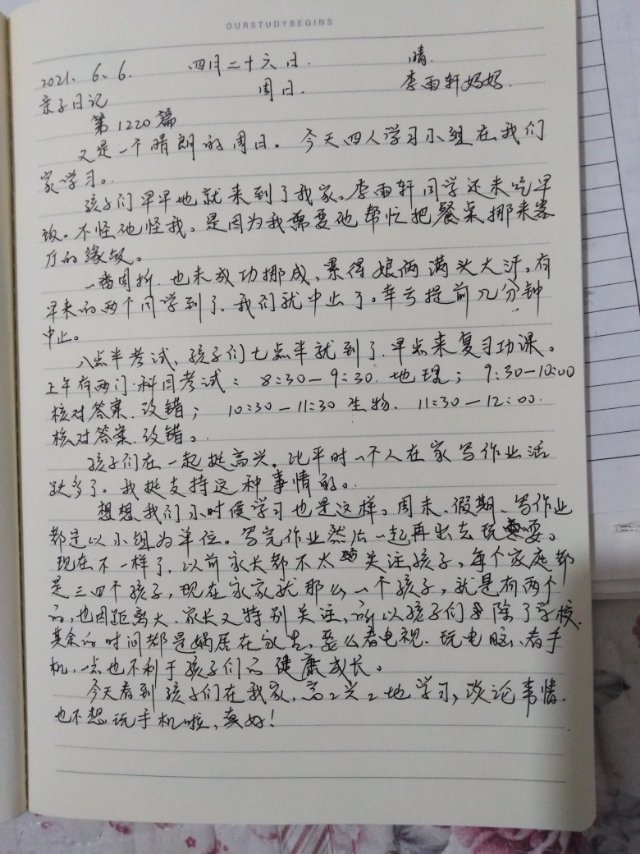 OURSTUDYBEGINS
2021. 6. 6. 四月二十六日. 晴.
亲子日记 周日. 李雨轩妈妈.
第1220篇
又是一个晴朗的周日。今天四人学习小组在我们
家学习。
孩子们早早地就来到了我家。李雨轩同学还未吃早
饭。不怪他怪我。是因为我需要他帮忙把餐桌挪来客
厅的缘故。
一番周折.也未成功挪成,累得娘两满头大汗。有
早来的两个同学到了.我们就中止了。幸亏提前几分钟
中止。
八点半考试,孩子们七点半就到了.早点来复习功课。
上午有两门科目考试: 8:30-9:30.地理; 9:30-10:00
核对答案.改错; 10:30-11:30 生物. 11:30-12:00.
核对答案.改错。
孩子们在一起挺高兴。比平时一个人在家写作业活
跃多了。我挺支持这种事情的。
想想我们小时候学习也是这样。周末、假期、写作业
都是以小组为单位。写完作业然后一起再出去玩耍。
现在不一样了.以前家长都不太关注孩子,每个家庭都
是三四个孩子,现在家家就那么一个孩子,就是有两个
的,也因距离大.家长又特别关注,所以孩子们除了学校.
其余的时间都是蜗居在家里,要么看电视.玩电脑.看手
机.一点也不利于孩子们的健康成长。
今天看到孩子们在我家,高高兴兴地学习,谈论事情.
也不想玩手机啦,真好!